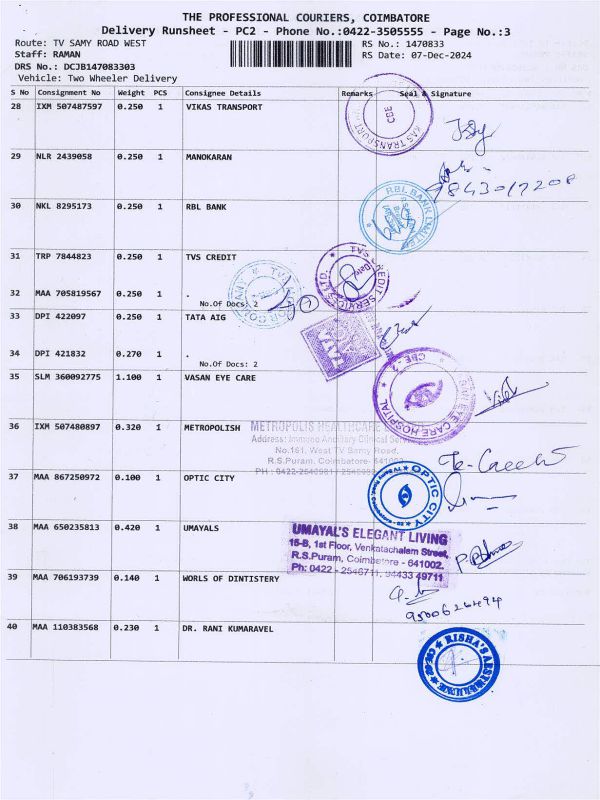 THE PROFESSIONAL COURIERS, COIMBATORE
Delivery Runsheet - PC2 - Phone No.:0422-3505555 - Page No.:3
Route: TV SAMY ROAD WEST RS No.: 1470833
Staff: RAMAN RS Date: 07-Dec-2024
DRS No.: DCJB147083303
Vehicle: Two Wheeler Delivery
S No Consignment No Weight PCS Consignee Details Remarks Seal & Signature
28 IXM 507487597 0.250 1 VIKAS TRANSPORT
CBE
29 NLR 2439058 0.250 1 MANOKARAN
9843017208
30 NKL 8295173 0.250 1 RBL BANK
RBL BANK LIMITED
31 TRP 7844823 0.250 1 TVS CREDIT
32 MAA 705819567 0.250 1 .
No.Of Docs: 2
33 DPI 422097 0.250 1 TATA AIG
TATA
34 DPI 421832 0.270 1 .
No.Of Docs: 2
35 SLM 360092775 1.100 1 VASAN EYE CARE
EYE CARE HOSPITAL
CBE
36 IXM 507480897 0.320 1 METROPOLISH
METROPOLIS HEALTHCARE
Address: Immuno Ancillary Clinical
No.161, West TV Samy Road,
R.S.Puram, Coimbatore- 641002
PH : 0422-2540581
37 MAA 867250972 0.100 1 OPTIC CITY
OPTIC CITY
38 MAA 650235813 0.420 1 UMAYALS
UMAYAL'S ELEGANT LIVING
15-B, 1st Floor, Venkatachalam Street,
R.S.Puram, Coimbatore - 641002.
Ph: 0422 - 2546711, 94433 49711
39 MAA 706193739 0.140 1 WORLS OF DINTISTERY
9500626494
40 MAA 110383568 0.230 1 DR. RANI KUMARAVEL
RISHA'S